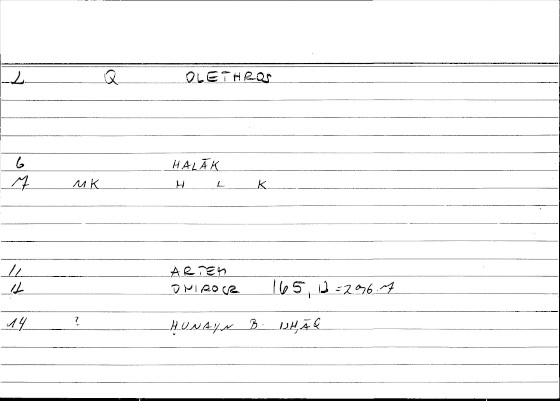 1 Q OLETHROS
6 HALĀK
7 MK H L K
11 ARTEM
12 ONIROCR 165, 12 = 296.7
14 ? ḤUNAYN B. ISḤĀQ